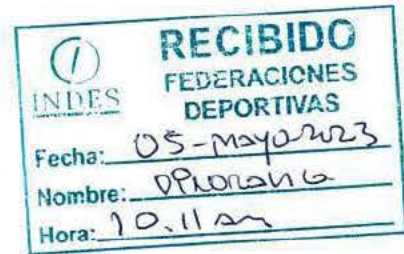 RECIBIDO
INDES
FEDERACIONES
DEPORTIVAS
Fecha: 05-mayo-2023
Nombre:
Hora: 10.11 am